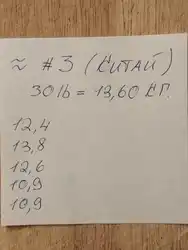 ≈ #3 (КИТАЙ)
30 lb = 13,60 КГ.
12,4
13,8
12,6
10,9
10,9